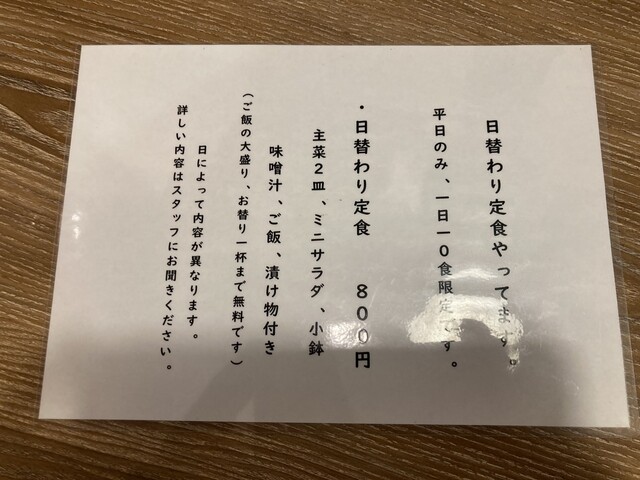 日替わり定食やってます。
平日のみ、一日一0食限定です。
・日替わり定食　８００円
主菜２皿、ミニサラダ、小鉢
味噌汁、ご飯、漬け物付き
（ご飯の大盛り、お替り一杯まで無料です）
日によって内容が異なります。
詳しい内容はスタッフにお聞きください。